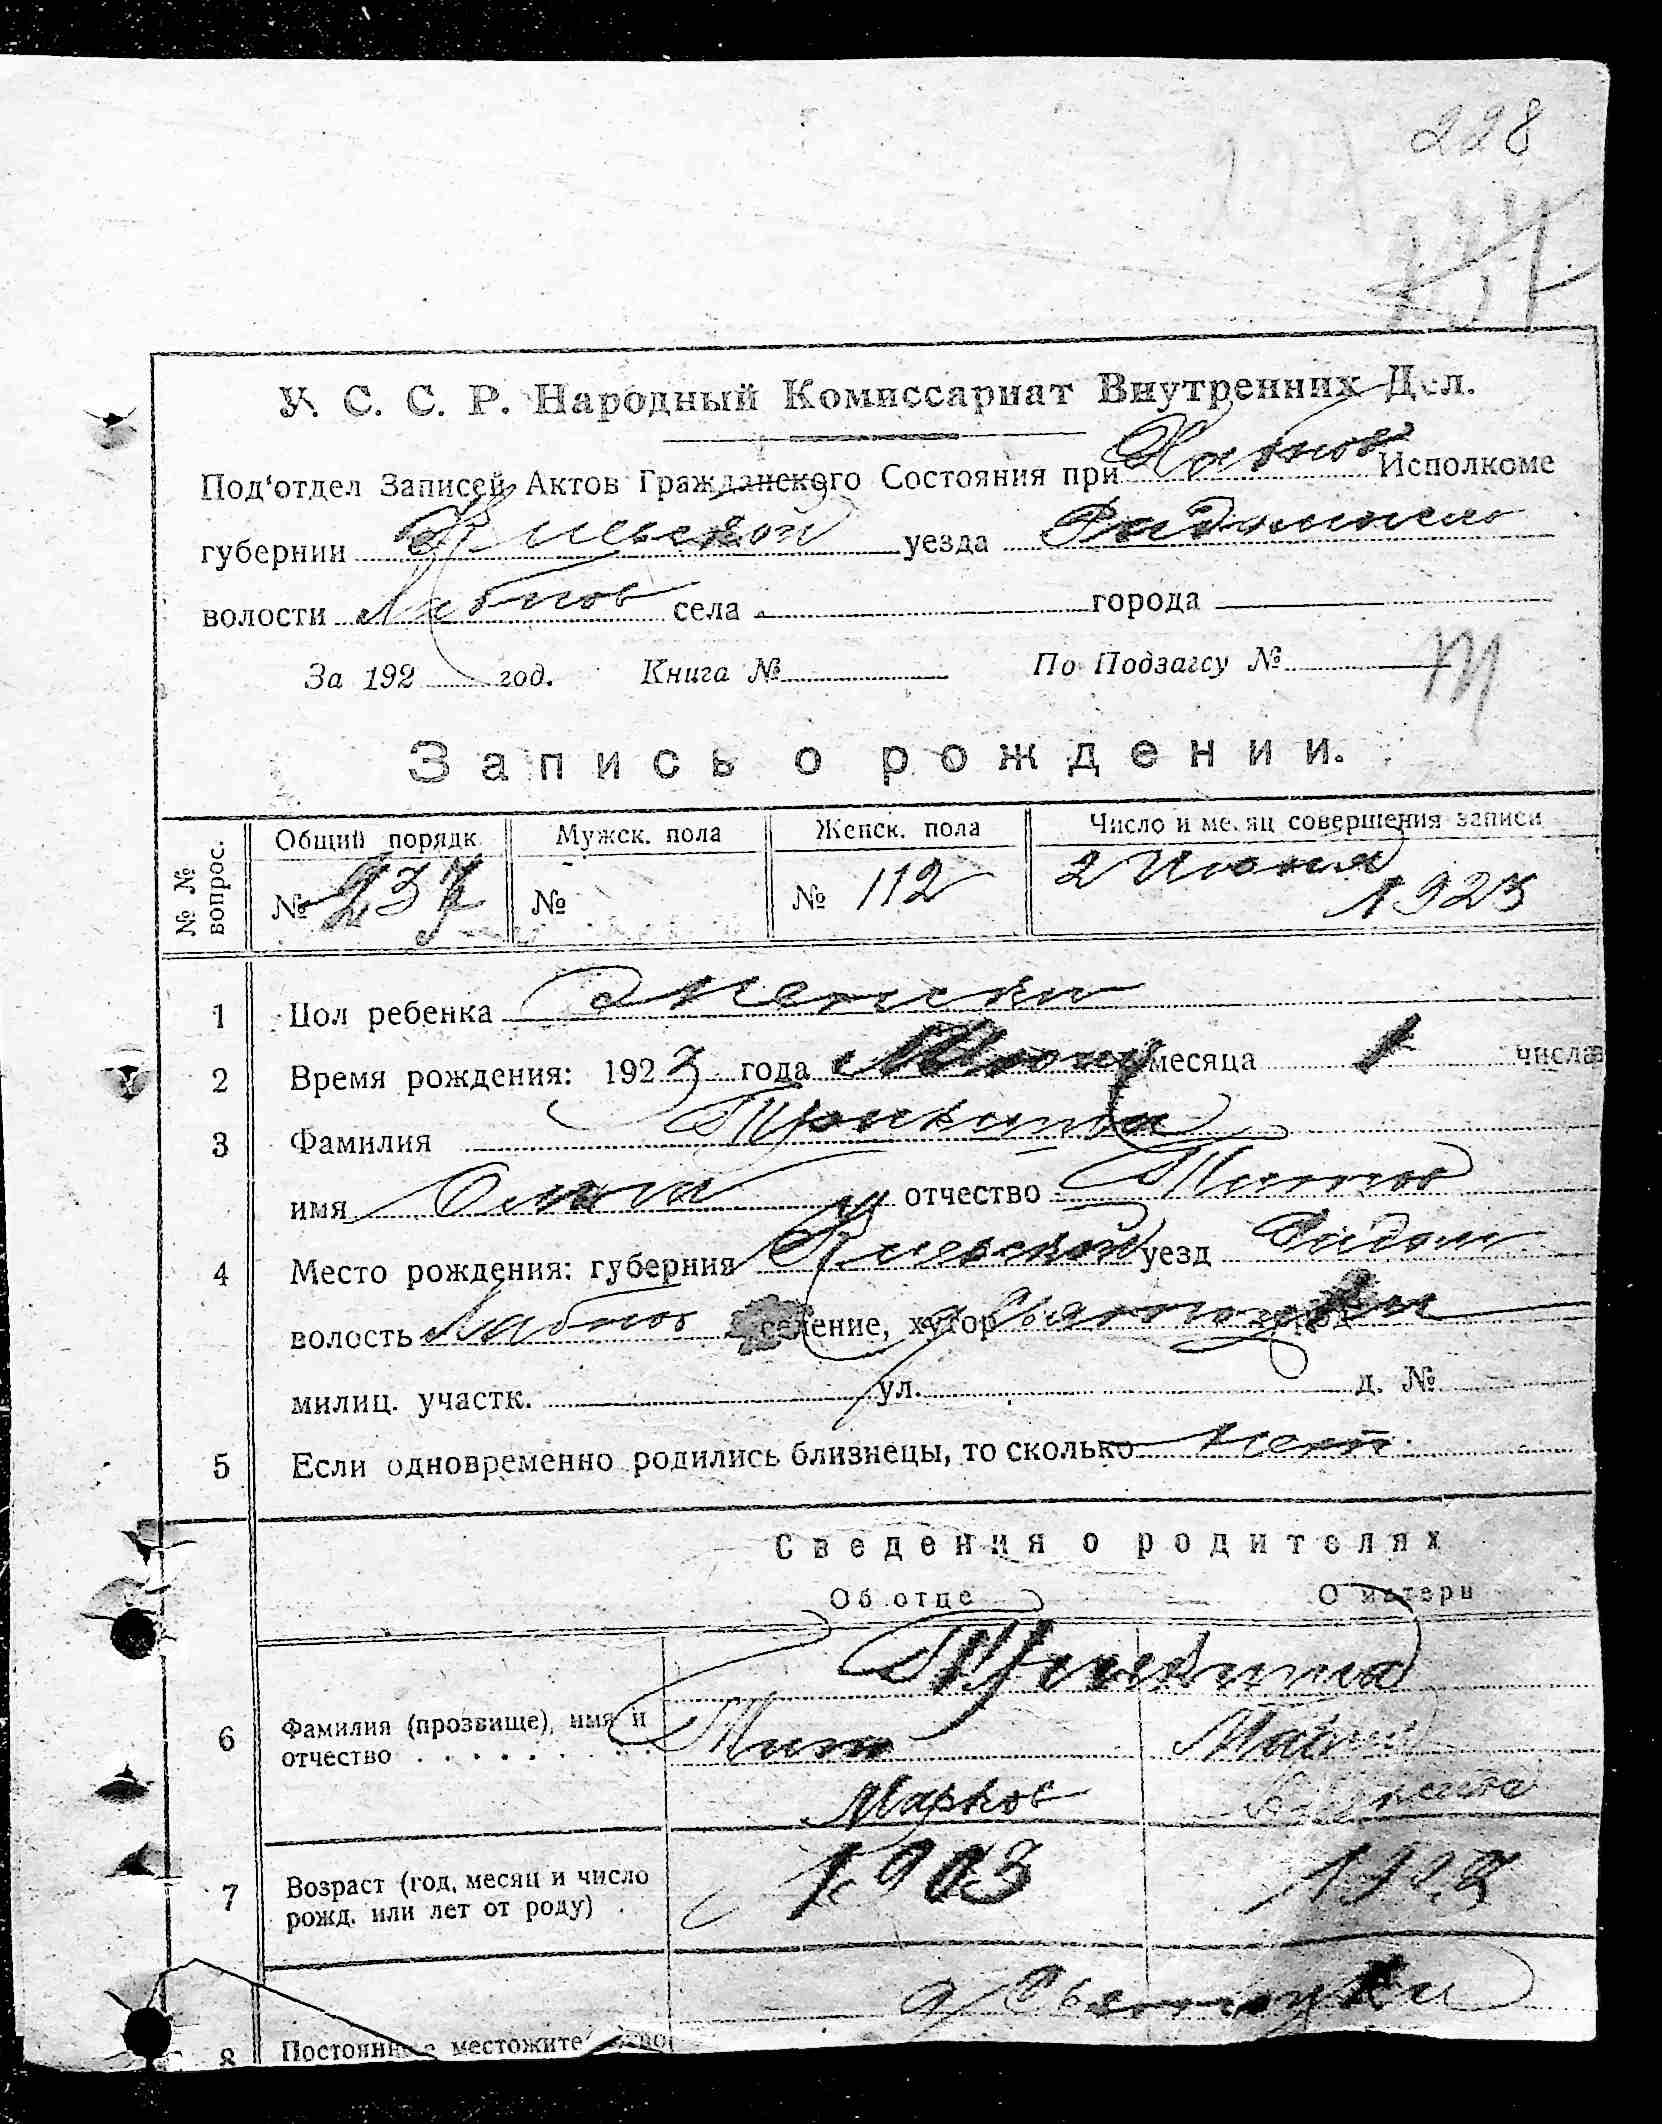 228
У. С. С. Р. Народный Комиссариат Внутренних Дел.
Под‘отдел Записей Актов Гражданского Состояния при Хабнов Исполкоме
губернии Киевской уезда
волости Хабнов села города
За 192 год. Книга № По Подзагсу №
Запись о рождении.
№ № вопрос. Общий порядк. Мужск. пола Женск. пола Число и месяц совершения записи
№ 237 № № 112 2 Июня 1923
1 Пол ребенка Женский
2 Время рождения: 1923 года Июня месяца 1 числа
3 Фамилия
имя Ольга отчество Титов
4 Место рождения: губерния Киевской уезд Радом
волость Хабнов селение, хутор
милиц. участк. ул. д. №
5 Если одновременно родились близнецы, то сколько нет
Сведения о родителях
Об отце О матери
6 Фамилия (прозвище), имя и
отчество Тит Мария
Марков
7 Возраст (год, месяц и число 1903
рожд. или лет от роду)
8 Постоянное местожительство